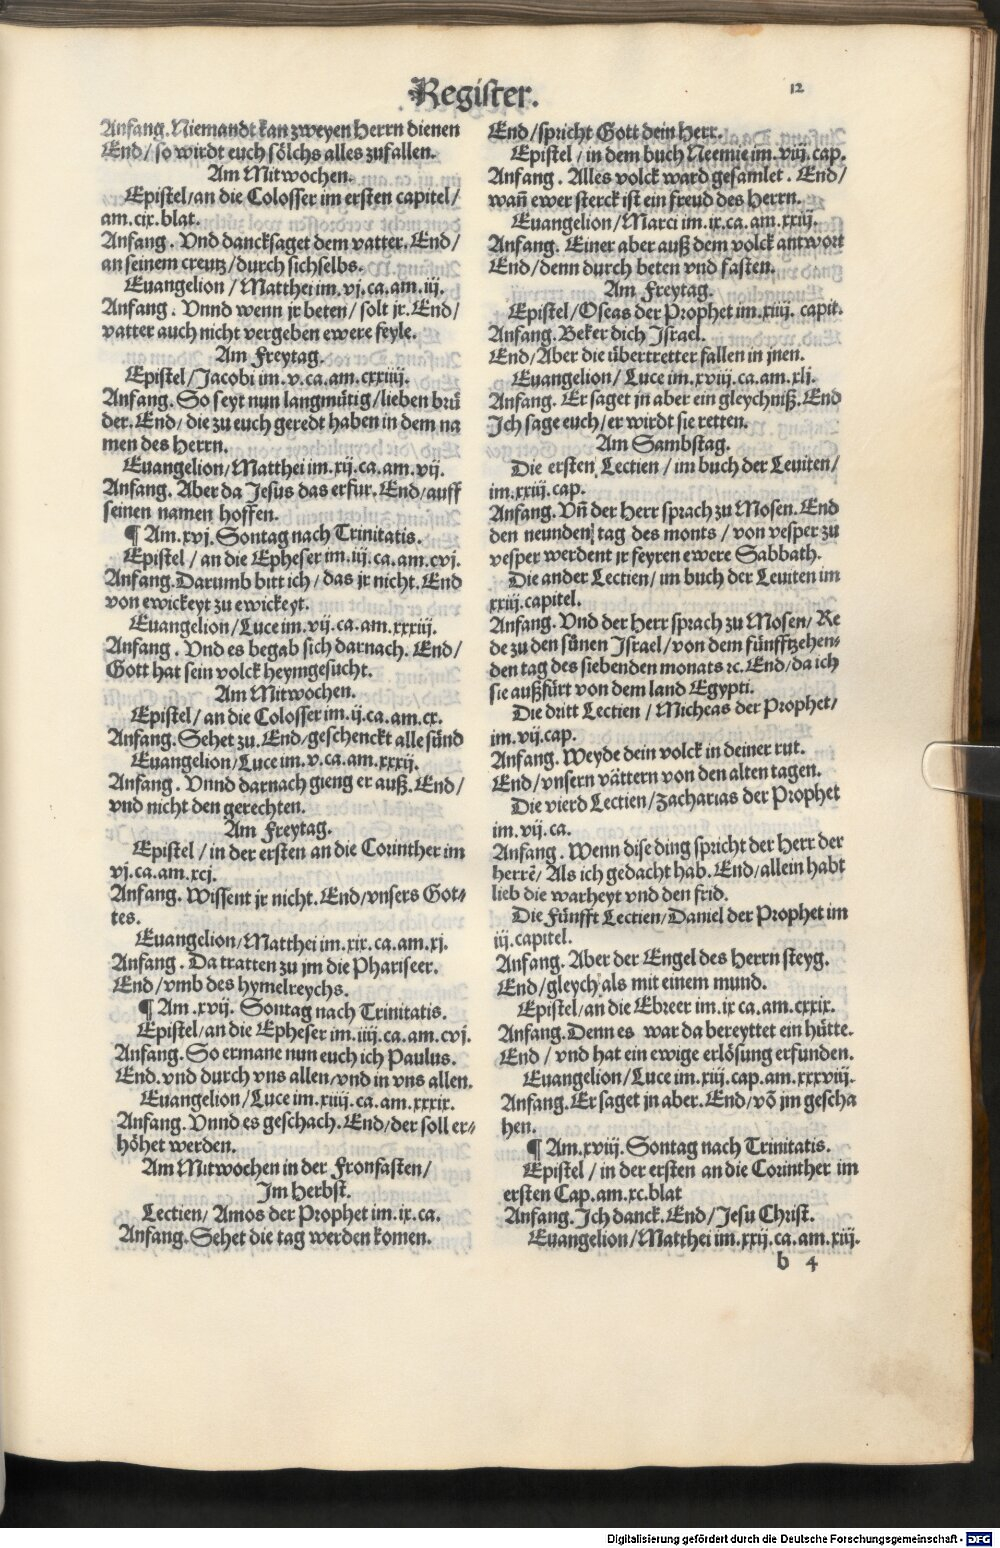 Register.
12
Anfang. Niemandt kan zweyen Herrn dienen
End/ so wirdt euch sölchs alles zufallen.
Am Mitwochen.
Epistel/an die Colosser im ersten capitel/
am.cix.blat.
Anfang. Vnd dancksaget dem vatter. End/
an seinem creutz/durch sichselbs.
Euangelion / Matthei im. vj. ca. am. iij.
Anfang. Vnnd wenn jr beten/ solt jr. End/
vatter auch nicht vergeben ewere feyle.
Am Freytag.
Epistel/Jacobi im. v. ca. am. cxxiiij.
Anfang. So seyt nun langmütig/lieben brü
der. End/ die zu euch geredt haben in dem na
men des Herrn.
Euangelion/Matthei im. xij. ca. am. vij.
Anfang. Aber da Jesus das erfur. End/auff
seinen namen hoffen.
¶ Am. xvj. Sontag nach Trinitatis.
Epistel / an die Epheser im. iij. ca. am. cvj.
Anfang. Darumb bitt ich / das jr nicht. End
von ewickeyt zu ewickeyt.
Euangelion/Luce im. vij. ca. am. xxxiij.
Anfang. Vnd es begab sich darnach. End/
Gott hat sein volck heymgesucht.
Am Mitwochen.
Epistel/ an die Colosser im. ij. ca. am. cx.
Anfang. Sehet zu. End/geschenckt alle sünd
Euangelion/Luce im. v. ca. am. xxxij.
Anfang. Vnnd darnach gieng er auß. End/
vnd nicht den gerechten.
Am Freytag.
Epistel / in der ersten an die Corinther im
vj. ca. am. xcj.
Anfang. Wissent jr nicht. End/vnsers Got-
tes.
Euangelion/Matthei im. xix. ca. am. xj.
Anfang. Da tratten zu jm die Phariseer.
End/vmb des hymelreychs.
¶ Am. xvij. Sontag nach Trinitatis.
Epistel/an die Epheser im. iiij. ca. am. cvj.
Anfang. So ermane nun euch ich Paulus.
End. vnd durch vns allen/vnd in vns allen.
Euangelion/Luce im. xiiij. ca. am. xxxix.
Anfang. Vnnd es geschach. End/der soll er-
höhet werden.
Am Mitwochen in der Fronfasten/
Im Herbst.
Lectien/ Amos der Prophet im. ix. ca.
Anfang. Sehet die tag werden komen.
End/spricht Gott dein Herr.
Epistel / in dem buch Neemie im. viij. cap.
Anfang. Alles volck ward gesamlet. End/
wañ ewer sterck ist ein freud des Herrn.
Euangelion/Marci im. ix. ca. am. xxiij.
Anfang. Einer aber auß dem volck antwort
End/denn durch beten vnd fasten.
Am Freytag.
Epistel/Oseas der Prophet im. xiiij. capit.
Anfang. Beker dich Israel.
End/Aber die übertretter fallen in jnen.
Euangelion/ Luce im. xviij. ca. am. xlj.
Anfang. Er saget jn aber ein gleychniß. End
Ich sage euch/er wirdt sie retten.
Am Sambstag.
Die ersten Lectien / im buch der Leuiten/
im. xxiij. cap.
Anfang. Vñ der Herr sprach zu Mosen. End
den neunden tag des monts / von vesper zu
vesper werdent jr feyren ewere Sabbath.
Die ander Lectien/ im buch der Leuiten im
xxiij. capitel.
Anfang. Vnd der Herr sprach zu Mosen/ Re
de zu den sünen Israel/von dem fünfftzehen-
den tag des siebenden monats ꝛc. End/da ich
sie außfürt von dem land Egypti.
Die dritt Lectien / Micheas der Prophet/
im. vij. cap.
Anfang. Weyde dein volck in deiner rut.
End/vnsern vättern von den alten tagen.
Die vierd Lectien/Zacharias der Prophet
im. vij. ca.
Anfang. Wenn dise ding spricht der Herr der
herrē/ Als ich gedacht hab. End/allein habt
lieb die warheyt vnd den frid.
Die Fünfft Lectien/Daniel der Prophet im
iij. capitel.
Anfang. Aber der Engel des Herrn steyg.
End/gleych als mit einem mund.
Epistel/an die Ebreer im. ix ca. am. cxxix.
Anfang. Denn es war da bereyttet ein hütte.
End / vnd hat ein ewige erlösung erfunden.
Euangelion/Luce im. xiij. cap. am. xxxviij.
Anfang. Er saget jn aber. End/vō jm gescha
hen.
¶ Am. xviij. Sontag nach Trinitatis.
Epistel / in der ersten an die Corinther im
ersten Cap. am. xc. blat
Anfang. Ich danck. End/Jesu Christ.
Euangelion/Matthei im. xxij. ca. am. xiij.
b 4
Digitalisierung gefördert durch die Deutsche Forschungsgemeinschaft - DFG